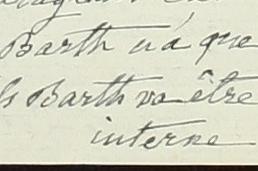 Barth n'a que
Barth va être
interne